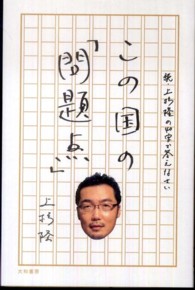 続 上杉隆の40字で答えなさい
この国の
「問題点」
上杉隆
大和書房